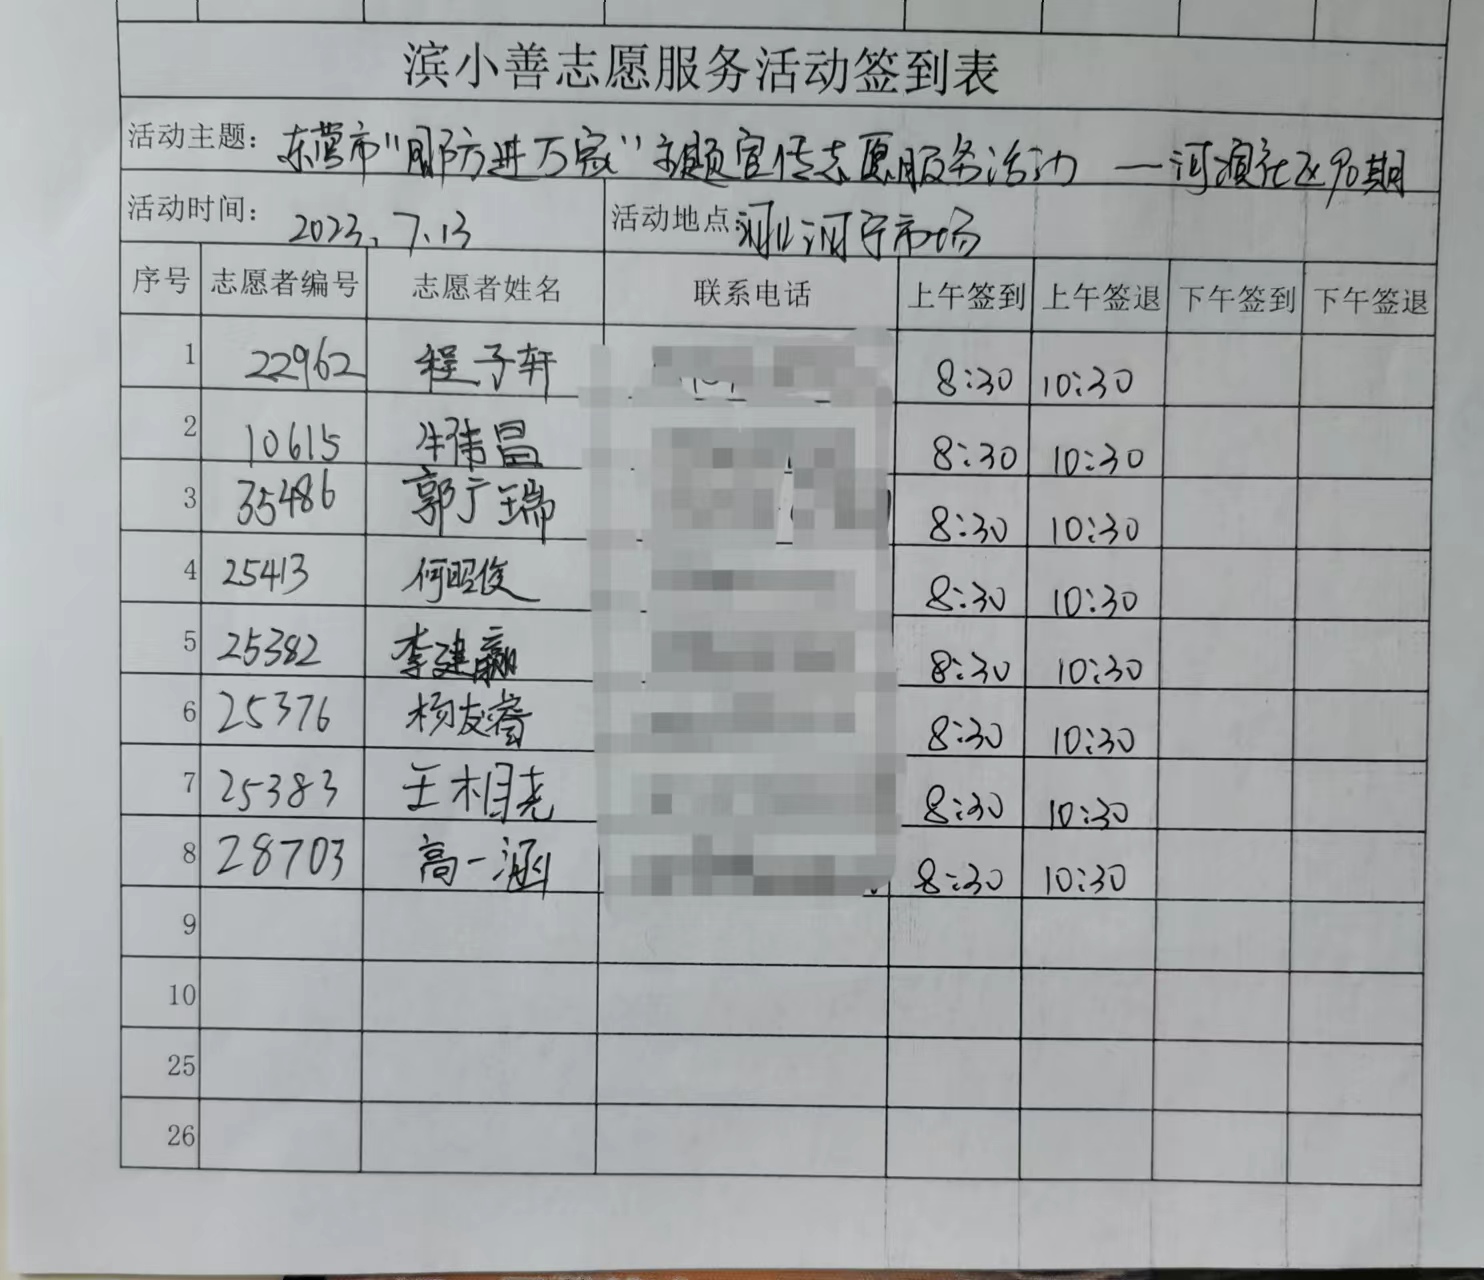 滨小善志愿服务活动签到表
活动主题：东营市“国防进万家”主题宣传志愿服务活动 —河滨社区90期
活动时间：2023.7.13 活动地点 河宁市场
序号 志愿者编号 志愿者姓名 联系电话 上午签到 上午签退 下午签到 下午签退
1 22962 程子轩 8:30 10:30
2 10615 牛伟昌 8:30 10:30
3 35486 郭广瑞 8:30 10:30
4 25413 何昭俊 8:30 10:30
5 25382 李建赢 8:30 10:30
6 25376 杨友睿 8:30 10:30
7 25383 王相尧 8:30 10:30
8 28703 高一涵 8:30 10:30
9
10
25
26